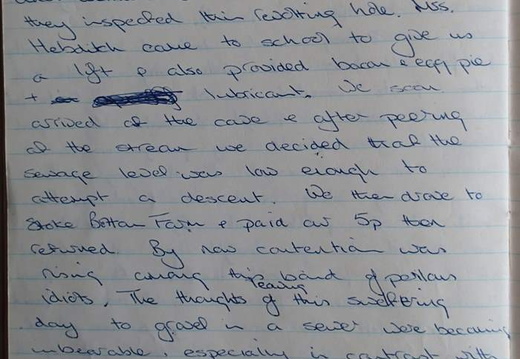 they inspected this revolting hole. Mrs.
Hebditch came to school to give us
a lift & also provided bacon & egg pie
+ lubricant. We soon
arrived at the cave & after peering
at the stream we decided that the
sewage level was low enough to
attempt a descent. We then drove to
Stoke Bottom Farm & paid our 5p then
returned. By now contention was
rising among this band of perilous
idiots. The thoughts of leaving this sweltering
day to grovel in a sewer were becoming
unbearable, especially in contrast with